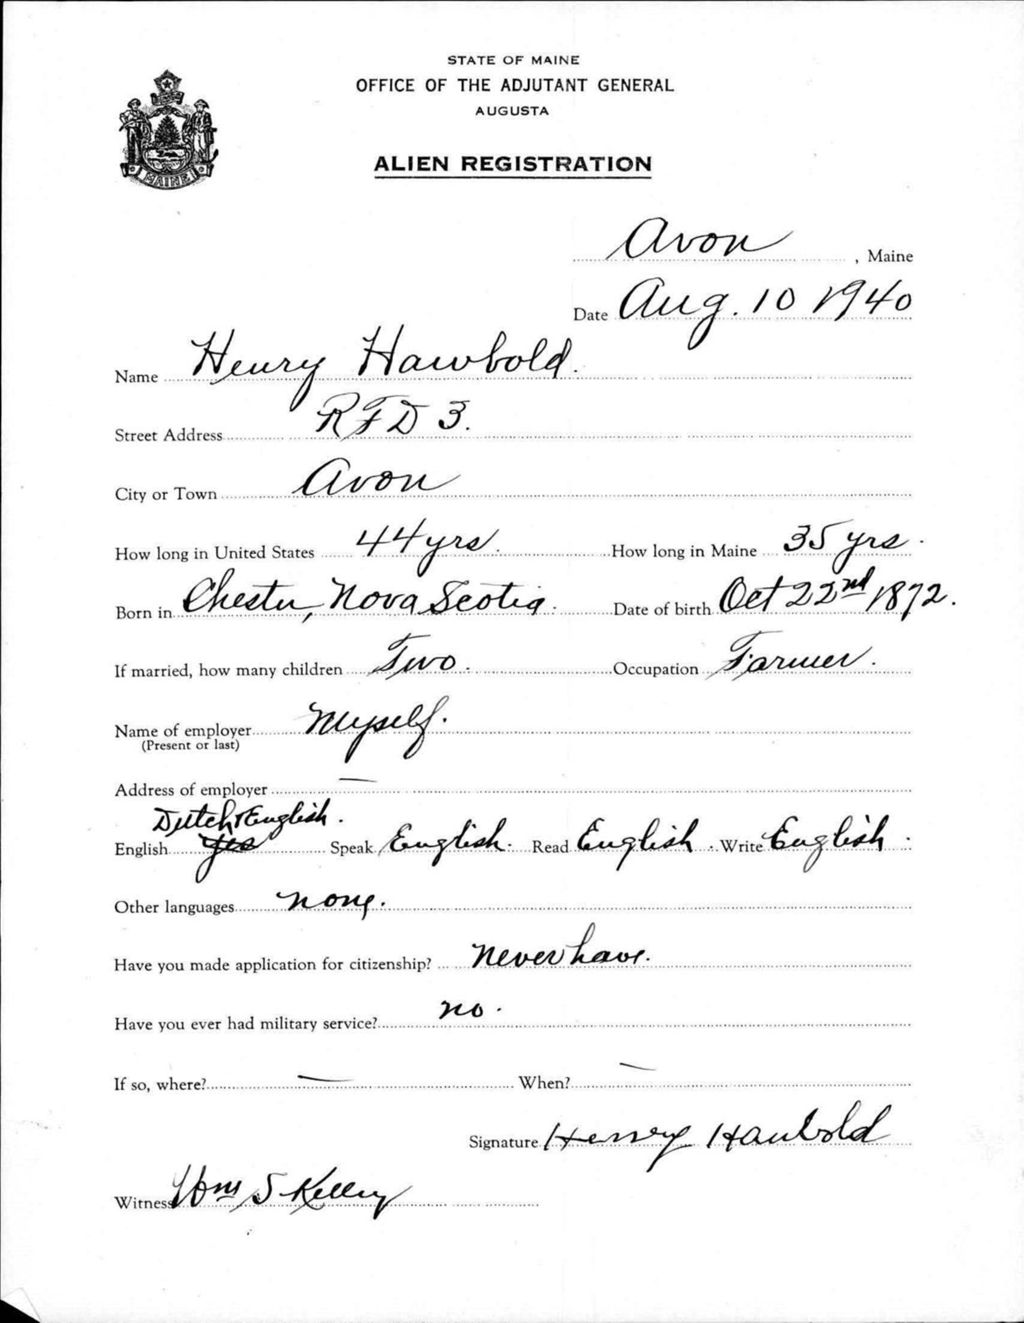 STATE OF MAINE
OFFICE OF THE ADJUTANT GENERAL
AUGUSTA
ALIEN REGISTRATION
MAINE
Avon, Maine
Date Aug. 10 1940
Name Henry Hawbold.
Street Address RFD 3.
City or Town Avon
How long in United States 44 yrs. How long in Maine 35 yrs.
Born in Chester, Nova Scotia. Date of birth Oct 22nd 1872.
If married, how many children Two. Occupation Farmer.
Name of employer Myself.
(Present or last)
Address of employer —
Dutch & English.
English Yes Speak English. Read English. Write English.
Other languages none.
Have you made application for citizenship? Never have.
Have you ever had military service? no.
If so, where? — When? —
Signature Henry Haubold
Witness Wm S Kelley